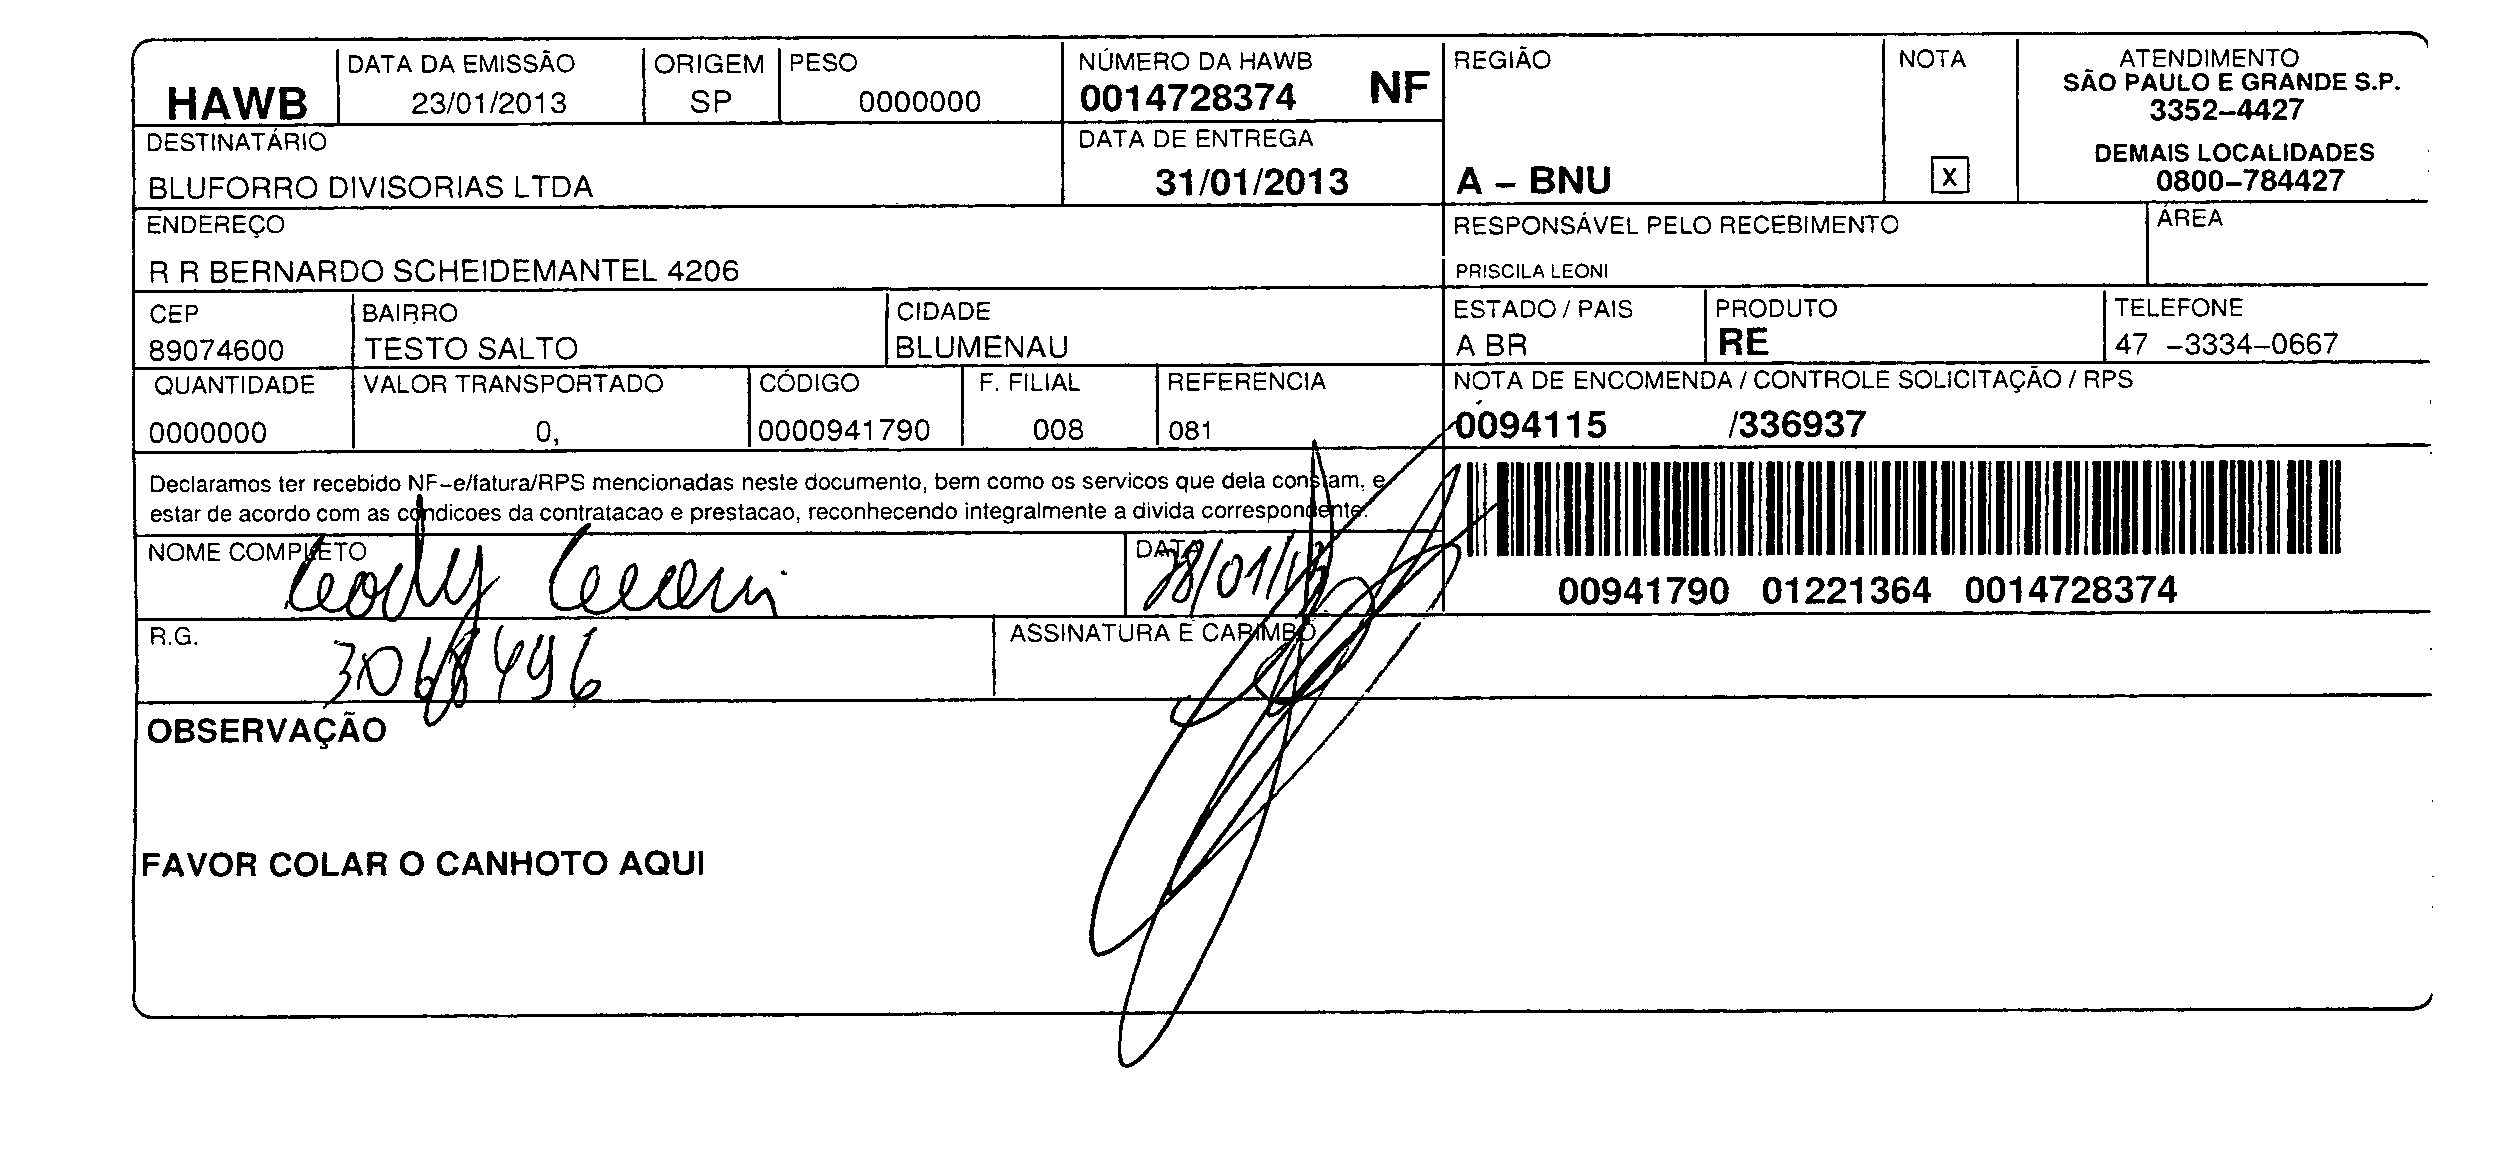 HAWB
DATA DA EMISSÃO
23/01/2013
ORIGEM
SP
PESO
0000000
NÚMERO DA HAWB
0014728374 NF
REGIÃO
A – BNU
NOTA
X
ATENDIMENTO
SÃO PAULO E GRANDE S.P.
3352–4427
DEMAIS LOCALIDADES
0800–784427
DESTINATÁRIO
BLUFORRO DIVISORIAS LTDA
DATA DE ENTREGA
31/01/2013
ENDEREÇO
R R BERNARDO SCHEIDEMANTEL 4206
RESPONSÁVEL PELO RECEBIMENTO
PRISCILA LEONI
ÁREA
CEP
89074600
BAIRRO
TESTO SALTO
CIDADE
BLUMENAU
ESTADO / PAIS
A BR
PRODUTO
RE
TELEFONE
47 –3334–0667
QUANTIDADE
0000000
VALOR TRANSPORTADO
0,
CÓDIGO
0000941790
F. FILIAL
008
REFERENCIA
081
NOTA DE ENCOMENDA / CONTROLE SOLICITAÇÃO / RPS
0094115 /336937
Declaramos ter recebido NF–e/fatura/RPS mencionadas neste documento, bem como os servicos que dela constam, e
estar de acordo com as condicoes da contratacao e prestacao, reconhecendo integralmente a divida correspondente.
00941790 01221364 0014728374
NOME COMPLETO
DATA
28/01/13
R.G.
3068496
ASSINATURA E CARIMBO
OBSERVAÇÃO
FAVOR COLAR O CANHOTO AQUI